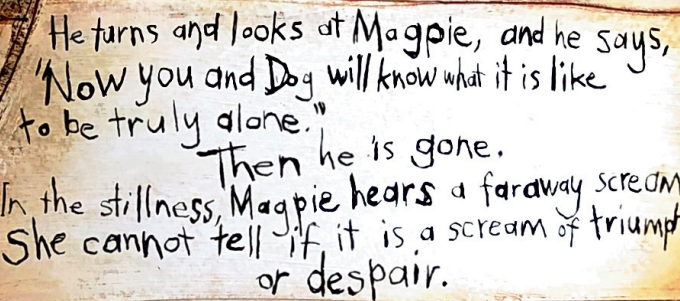 He turns and looks at Magpie, and he says,
"Now you and Dog will know what it is like
to be truly alone."
Then he is gone.
In the stillness, Magpie hears a faraway scream
She cannot tell if it is a scream of triumph
or despair.